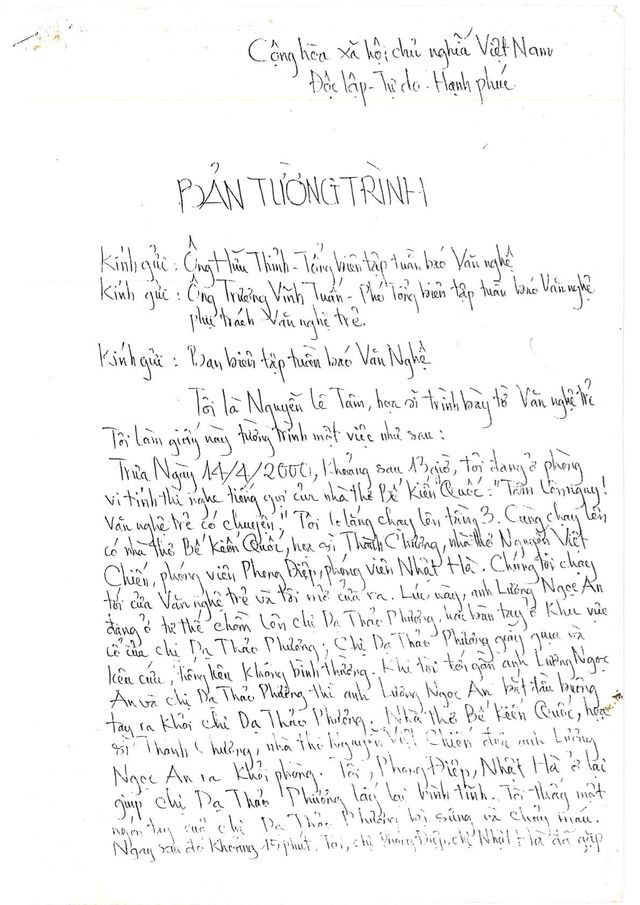 Cộng hòa xã hội chủ nghĩa Việt Nam
Độc lập - Tự do - Hạnh phúc
BẢN TƯỜNG TRÌNH
Kính gửi : Ông Hữu Thỉnh - Tổng biên tập tuần báo Văn nghệ
Kính gửi : Ông Trương Vĩnh Tuấn - Phó Tổng biên tập tuần báo Văn nghệ
phụ trách Văn nghệ trẻ.
Kính gửi : Ban biên tập tuần báo Văn Nghệ
Tôi là Nguyễn Lê Tâm, họa sĩ trình bày tờ Văn nghệ trẻ
Tôi làm giấy này tường trình một việc như sau :
Trưa Ngày 14/4/2000, Khoảng sau 13 giờ, tôi đang ở phòng
vi tính thì nghe tiếng gọi của nhà thơ Bế Kiến Quốc : "Tâm lên ngay!
Văn nghệ trẻ có chuyện". Tôi lo lắng chạy lên tầng 3. Cùng chạy lên
có nhà thơ Bế Kiến Quốc, họa sĩ Thành Chương, nhà thơ Nguyễn Việt
Chiến, phóng viên Phong Điệp, phóng viên Nhật Hà. Chúng tôi chạy
tới cửa Văn nghệ trẻ và tôi mở cửa ra. Lúc này, anh Lương Ngọc An
đang ở tư thế chồm lên chị Dạ Thảo Phương, hai bàn tay ở Khu vực
cổ của chị Dạ Thảo Phương ; Chị Dạ Thảo Phương giãy giụa và
kêu cứu, tiếng kêu Không bình thường. Khi tôi tới gần anh Lương Ngọc
An và chị Dạ Thảo Phương thì anh Lương Ngọc An bắt đầu buông
tay ra Khỏi chị Dạ Thảo Phương. Nhà thơ Bế Kiến Quốc, họa
sĩ Thành Chương, nhà thơ Nguyễn Việt Chiến đưa anh Lương
Ngọc An ra Khỏi phòng. Tôi, Phong Điệp, Nhật Hà ở lại
giúp chị Dạ Thảo Phương lấy lại bình tĩnh. Tôi thấy một
ngón tay của chị Dạ Thảo Phương bị sưng và chảy máu.
Ngay sau đó Khoảng 15 phút, Tôi, chị Phong Điệp, chị Nhật Hà đã gặp